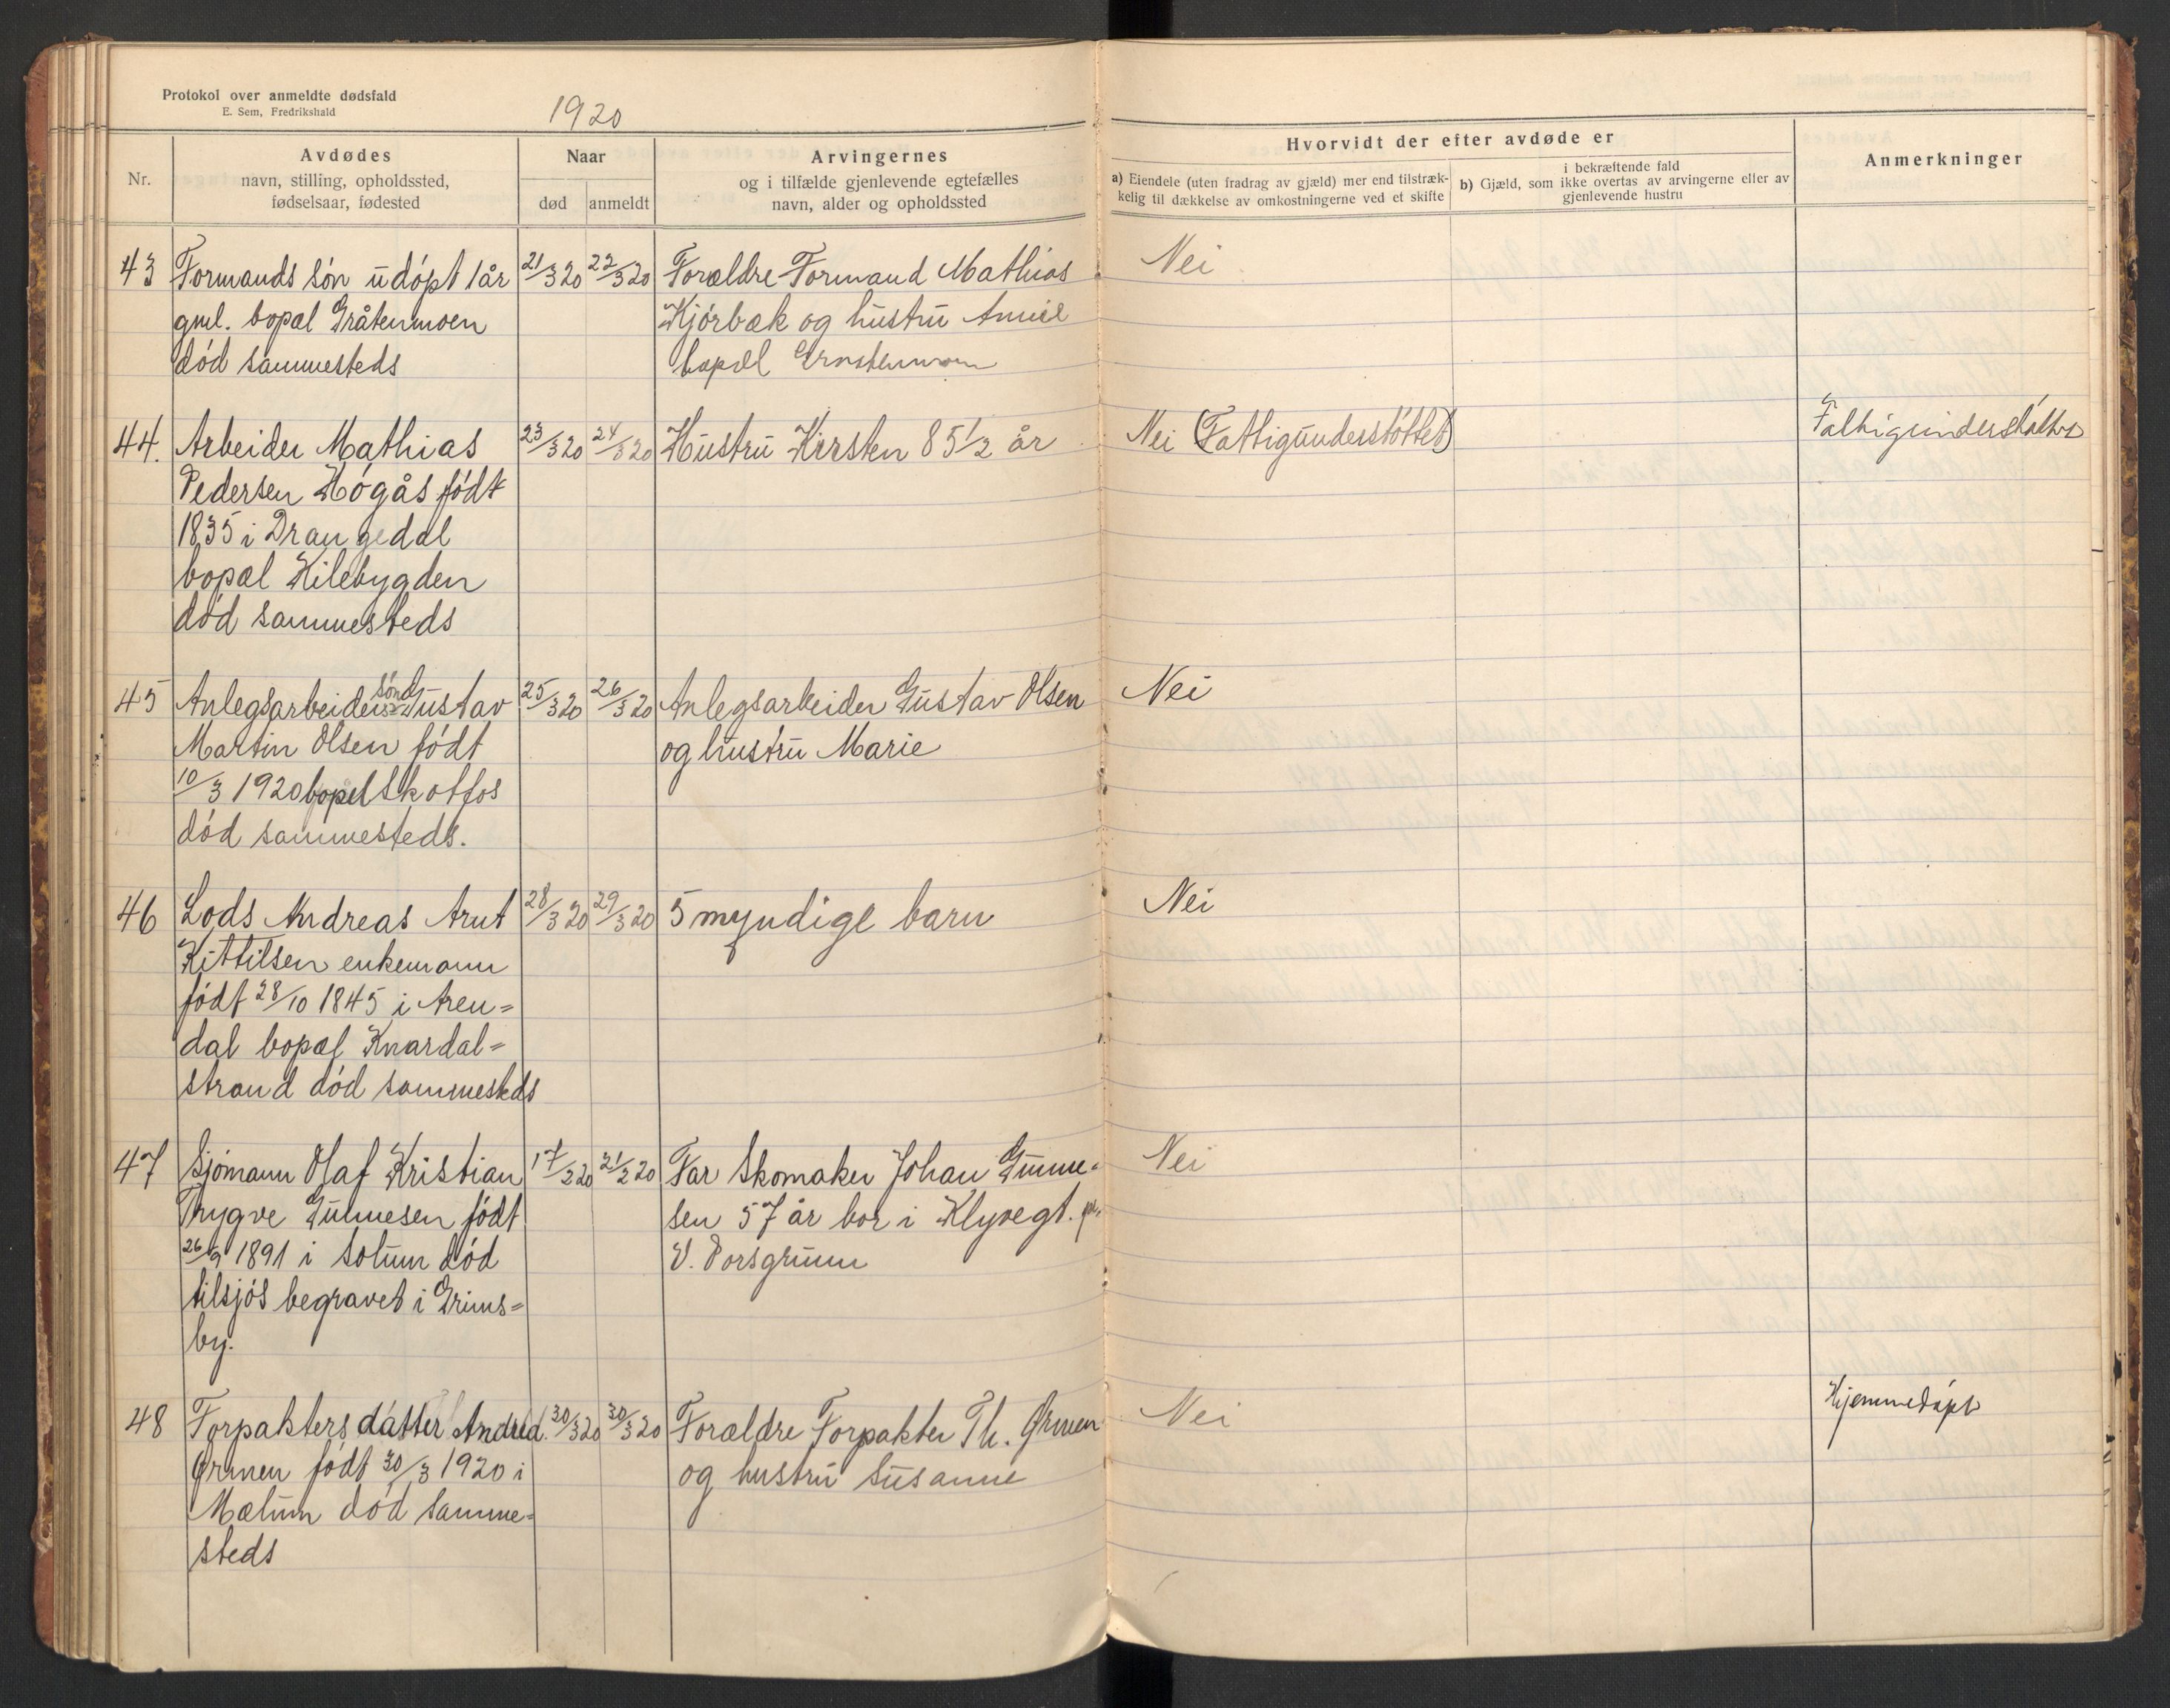 Protokol over anmeldte dødsfald
E. Sem, Fredrikshald
1920
Nr.
Avdødes
navn, stilling, opholdssted,
fødselsaar, fødested
Naar
død
anmeldt
Arvingernes
og i tilfælde gjenlevende egtefælles
navn, alder og opholdssted
Hvorvidt der efter avdøde er
a) Eiendele (uten fradrag av gjæld) mer end tilstræk-
kelig til dækkelse av omkostningerne ved et skifte
i bekræftende fald
b) Gjæld, som ikke overtas av arvingerne eller av
gjenlevende hustru
Anmerkninger
43 Formands søn udøpt 1 år 21/3 20 22/3 20 Forældre Formand Mathias Nei
gml. bopæl Gråtenmoen Kjørbæk og hustru
død sammesteds bopæl
44. Arbeider Mathias 23/3 20 24/3 20 Hustru Kirsten 85 1/2 år Nei (Fattigunderstøttet) Fattigunderstøttet
Pedersen Høgås født
1835 i Drangedal
bopæl Kilebygden
død sammesteds
45 Anlegsarbeiders søn Gustav 25/3 20 26/3 20 Anlegsarbeider Gustav Olsen Nei
Martin Olsen født og hustru Marie
10/3 1920 bopæl Skotfos
død sammesteds.
46 Lods Andreas Arnt 28/3 20 29/3 20 5 myndige barn Nei
Kittilsen enkemann
født 28/10 1845 i Aren=
dal bopæl Knardal=
strand død sammesteds
47 Sjømann Olaf Kristian 17/2 20 21/2 20 Far Skomaker Johan Gunne= Nei
Trygve Gunnesen født sen 57 år bor i Klyvegt.
26/9 1891 i Solum død V. Porsgrunn
tilsjøs begravet i Grims=
by.
48 Forpakters datter 30/3 20 30/3 20 Forældre Forpakter Th. Ormen Nei Hjemmedøpt
Ormen født 30/3 1920 i og hustru Susanne
Mælum død samme=
steds